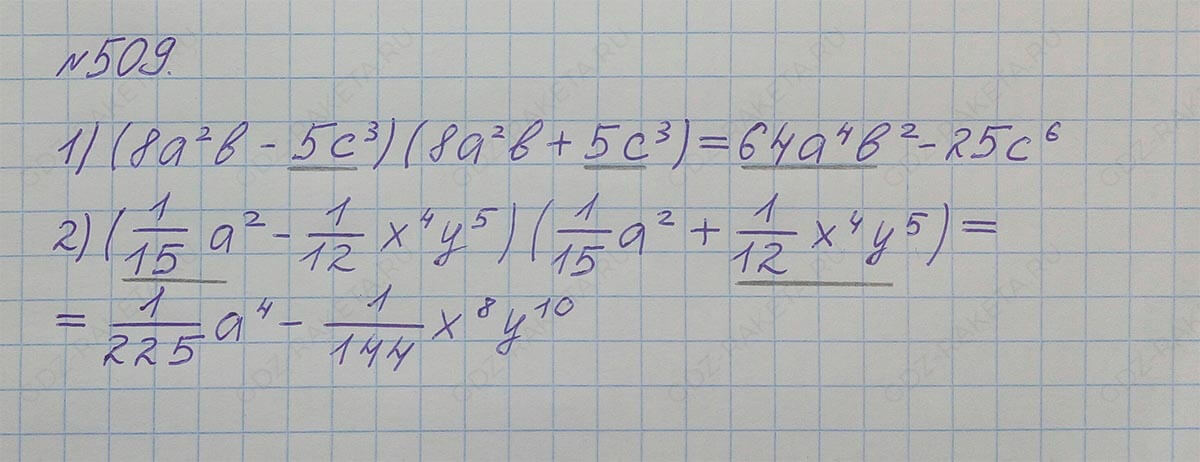 №509.
1) (8a²b - 5c³)(8a²b + 5c³) = 64a⁴b² - 25c⁶
2) (1/15 a² - 1/12 x⁴y⁵)(1/15 a² + 1/12 x⁴y⁵) =
= 1/225 a⁴ - 1/144 x⁸y¹⁰
GDZ-RAKETA.RU